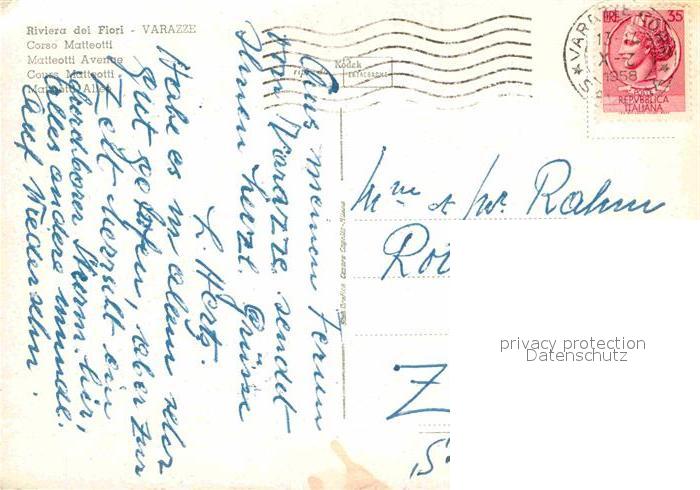 Riviera dei Fiori - VARAZZE
Corso Matteotti
Matteotti Avenue
Cours Matteotti
Matteotti Allee
Kodak
LIRE 35
REPVBBLICA
ITALIANA
VARAZZE
1958
Aus meinen Ferien
von Varazze sendet
Ihnen herzl. Grüsse
L. Hertz.
Habe es in allem sehr
gut getroffen, aber zur
Zeit herrscht ein
furchtbarer Sturm hier,
alles andere
Auf Wiedersehn.
Mme et Mr. Rahm
Z
privacy protection
Datenschutz